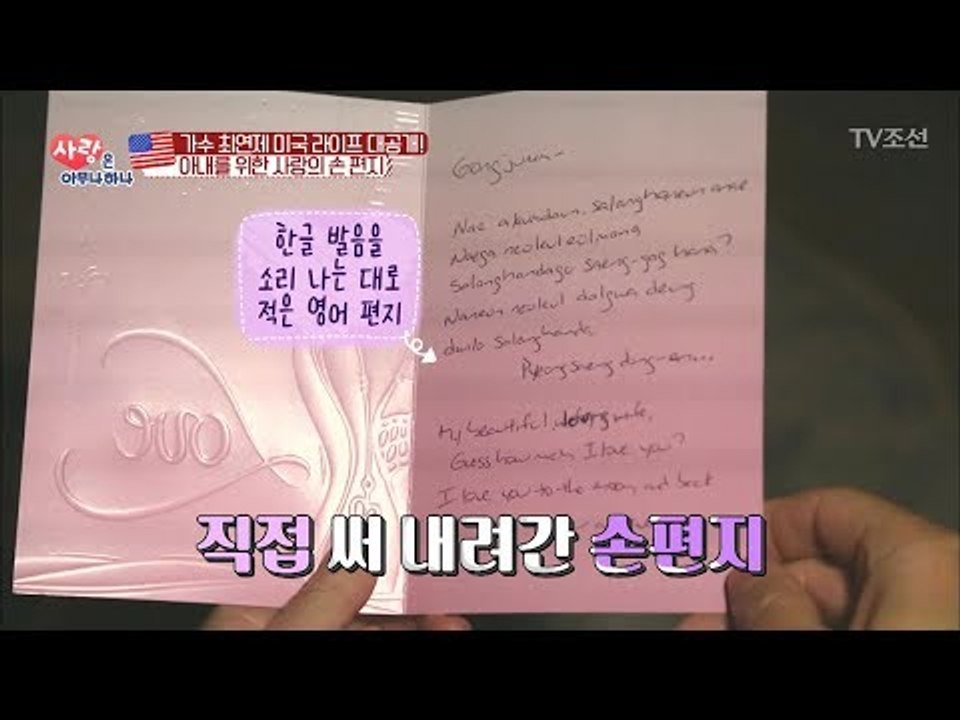 사랑은
아무나하나
가수 최연제 미국 라이프 대공개!
아내를 위한 사랑의 손 편지
TV조선
한글 발음을
소리 나는 대로
적은 영어 편지
Gongjunim
Nae salanghaneun anae
Naega neoleul eolmana
Salanghandago saeng-gag hana?
Naneun neoleul dalgwa
salanghanda
Pyeongsaeng dong-an...
My beautiful, loving wife,
Guess how much I love you?
I love you to the moon and back
직접 써 내려간 손편지